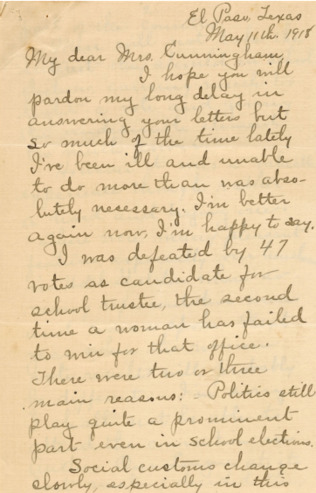 El Paso, Texas
May 11th. 1918
My dear Mrs. Cunningham,
I hope you will
pardon my long delay in
answering your letters but
so much of the time lately
I've been ill and unable
to do more than was abso-
lutely necessary. I'm better
again now, I'm happy to say.
I was defeated by 47
votes as candidate for
school trustee, the second
time a woman has failed
to win for that office.
There were two or three
main reasons: Politics still
play quite a prominent
part even in school elections.
Social customs change
slowly, especially in this